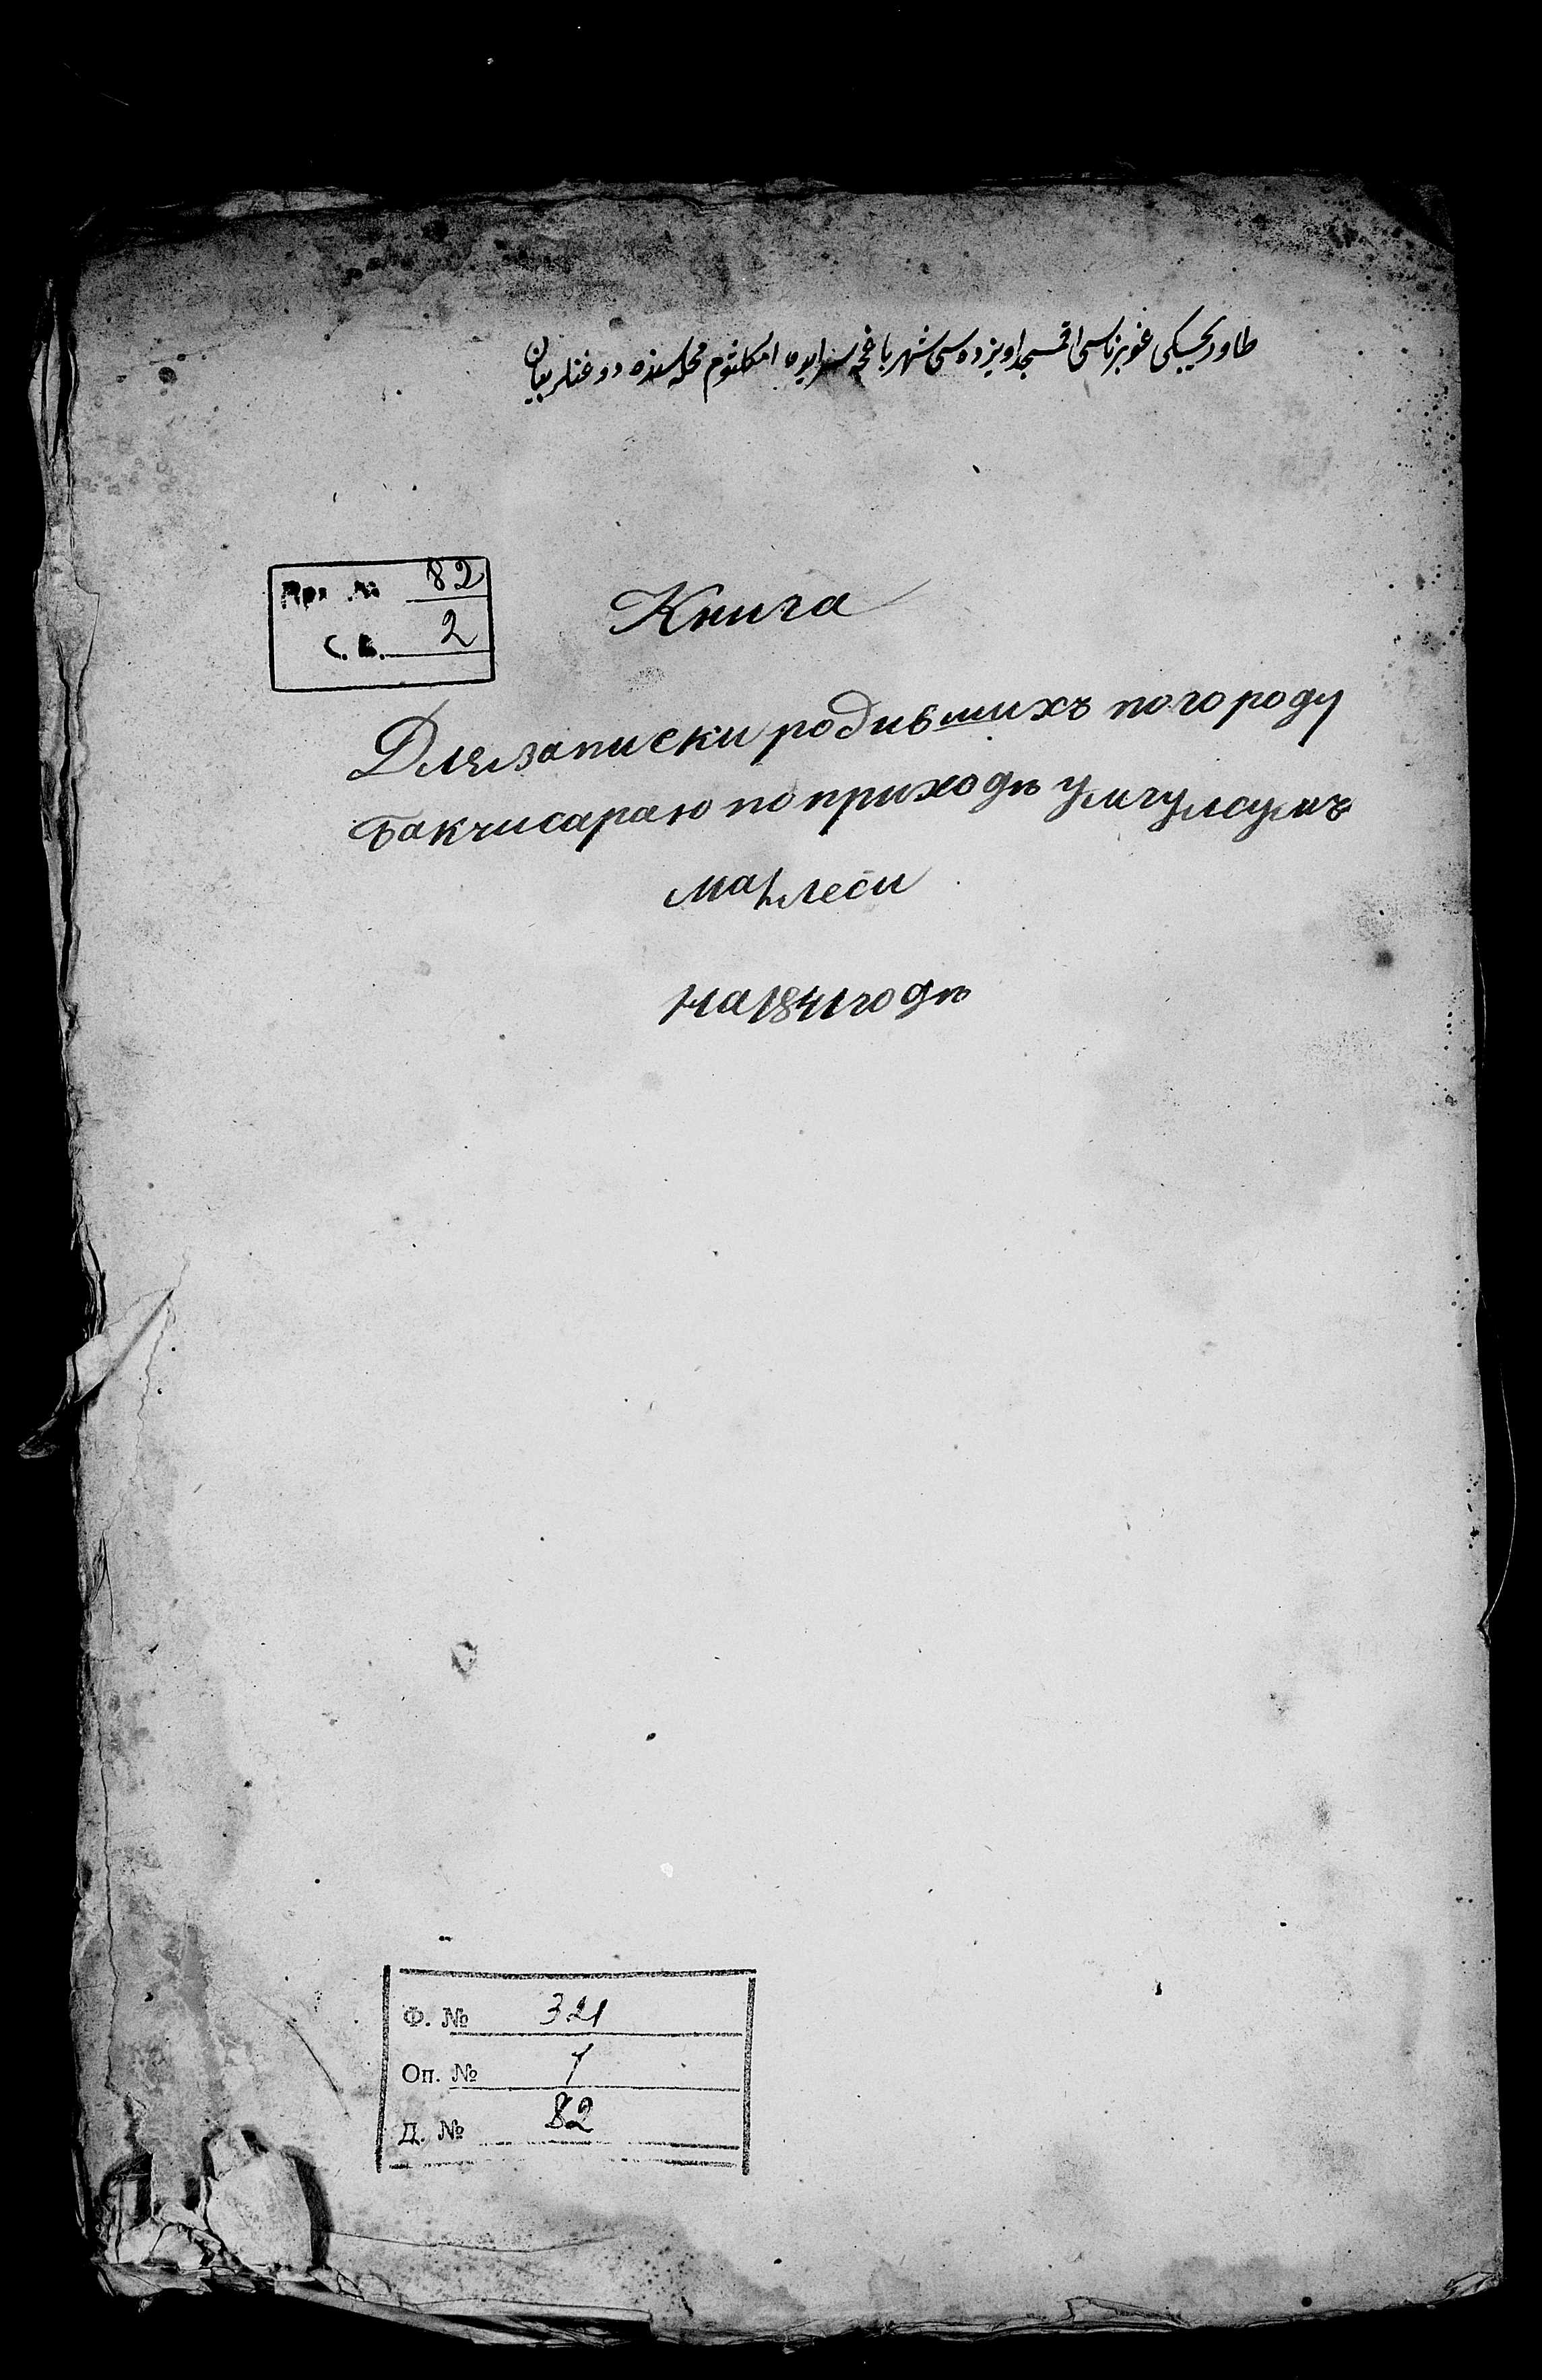 طاوريچيسكى غوبيرناسى اقمسجد اويزده سى شهر باغچه سرايده امكلثوم محله سنده دوغنلر
82
С. В. 2
Книга
Для записки родившихъ по городу
Бакчисараю по приходѣ Умгулсумъ
маһлеси
на 1841 годѣ
Ф. № 321
Оп. № 1
Д. № 82